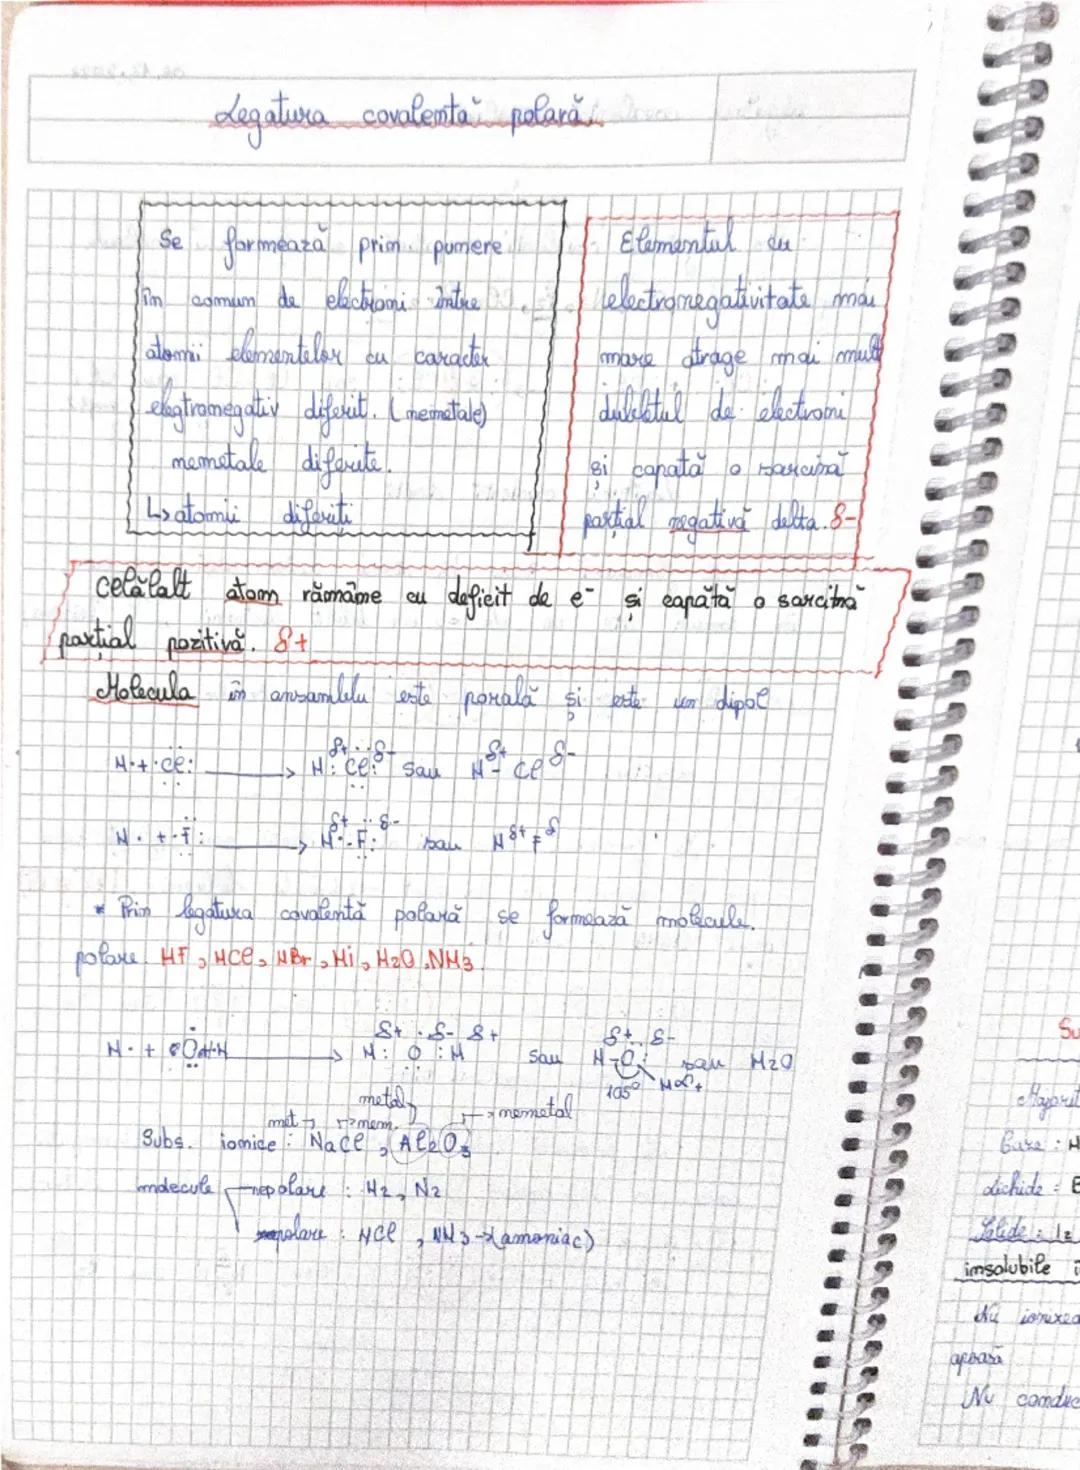 Legatura covalentă polară
Se formează prim pumere
îm comum de electromi între
atomii elementelor cu caracter
elegtromegativ diferit. (memetale)
memetale diferite.
↳ atomii diferiți
Elementul cu
electronegativitate mai
mare atrage mai mult
dubletul de electromi
și capată o sarcină
parțial negativă delta. δ-
Celălalt atom rămâme cu deficit de e⁻ și capătă o sarcină
parțial pozitivă. δ+
Molecula îm ansamblu este porală și este um dipol
H· + ·Cl: → H:Cl: sau H - Cl
δ+ δ- δ+ δ-
H· + ·F: → H··F: sau H δ+ F δ
δ+ δ-
* Prim legatura covalentă polară se formează molecule.
polare HF, HCl, HBr, Hi, H2O, NH3.
δ+ δ- δ+ δ+ δ-
H· + O H → H: O :H sau H-O: sau H2O
105° H δ+
metal
met → mem. → memetal
Subs. iomice: NaCl, Al2O3
molecule nepolare: H2, N2
polare: HCl, NH3 → (amoniac)
Su
Majorit
Gaze: H
Lichide: B
Solide: I2
imsolubile î
Nu ionizea
apoasă
Nu conduc